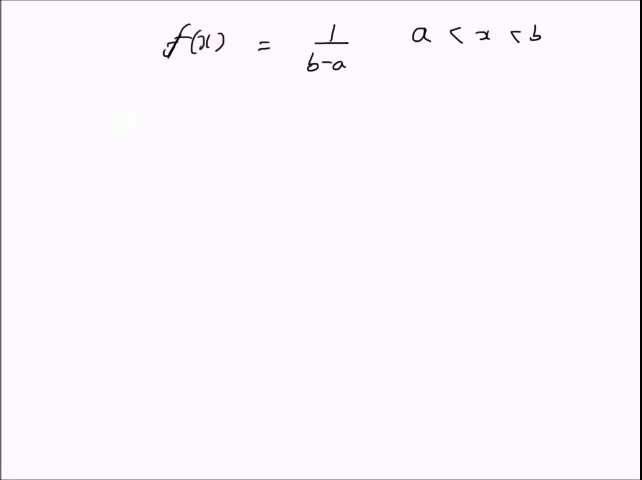 f(x) = 1/(b-a) a < x < b